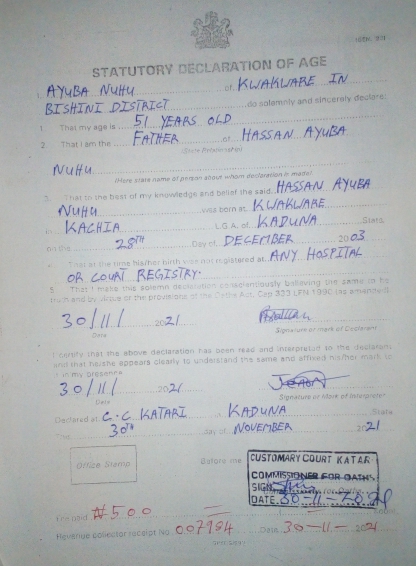 STATUTORY DECLARATION OF AGE
I, AYUBA NUHU of KWAKWARE IN
BISHINI DISTRICT do solemnly and sincerely declare:
1. That my age is 51 YEARS OLD
2. That I am the FATHER of HASSAN AYUBA
(State Relationship)
NUHU
(Here state name of person about whom declaration is made)
3. That to the best of my knowledge and belief the said HASSAN AYUBA
NUHU was born at KWAKWARE
in KACHIA L.G.A. of KADUNA State
on the 28TH Day of DECEMBER 2003
4. That at the time his/her birth was not registered at ANY HOSPITAL
OR COURT REGISTRY.
5. That I make this solemn declaration conscientiously believing the same to be
true and by virtue of the provisions of the Oaths Act, Cap 333 LFN 1990 (as amended)
30/11/ 2021
Date Signature or mark of Declarant
I certify that the above declaration has been read and interpreted to the declarant
and that he/she appears clearly to understand the same and affixed his/her mark to
it in my presence
30/11/ 2021
Date Signature or Mark of Interpreter
Declared at C.C KATARI KADUNA State
This 30th day of NOVEMBER 2021
Office Stamp
Before me
CUSTOMARY COURT KATAR
COMMISSIONER FOR OATHS
SIGN
DATE 30-11-2021
Fee paid ₦500
Revenue collector receipt No. 007984 Date 30-11-2021